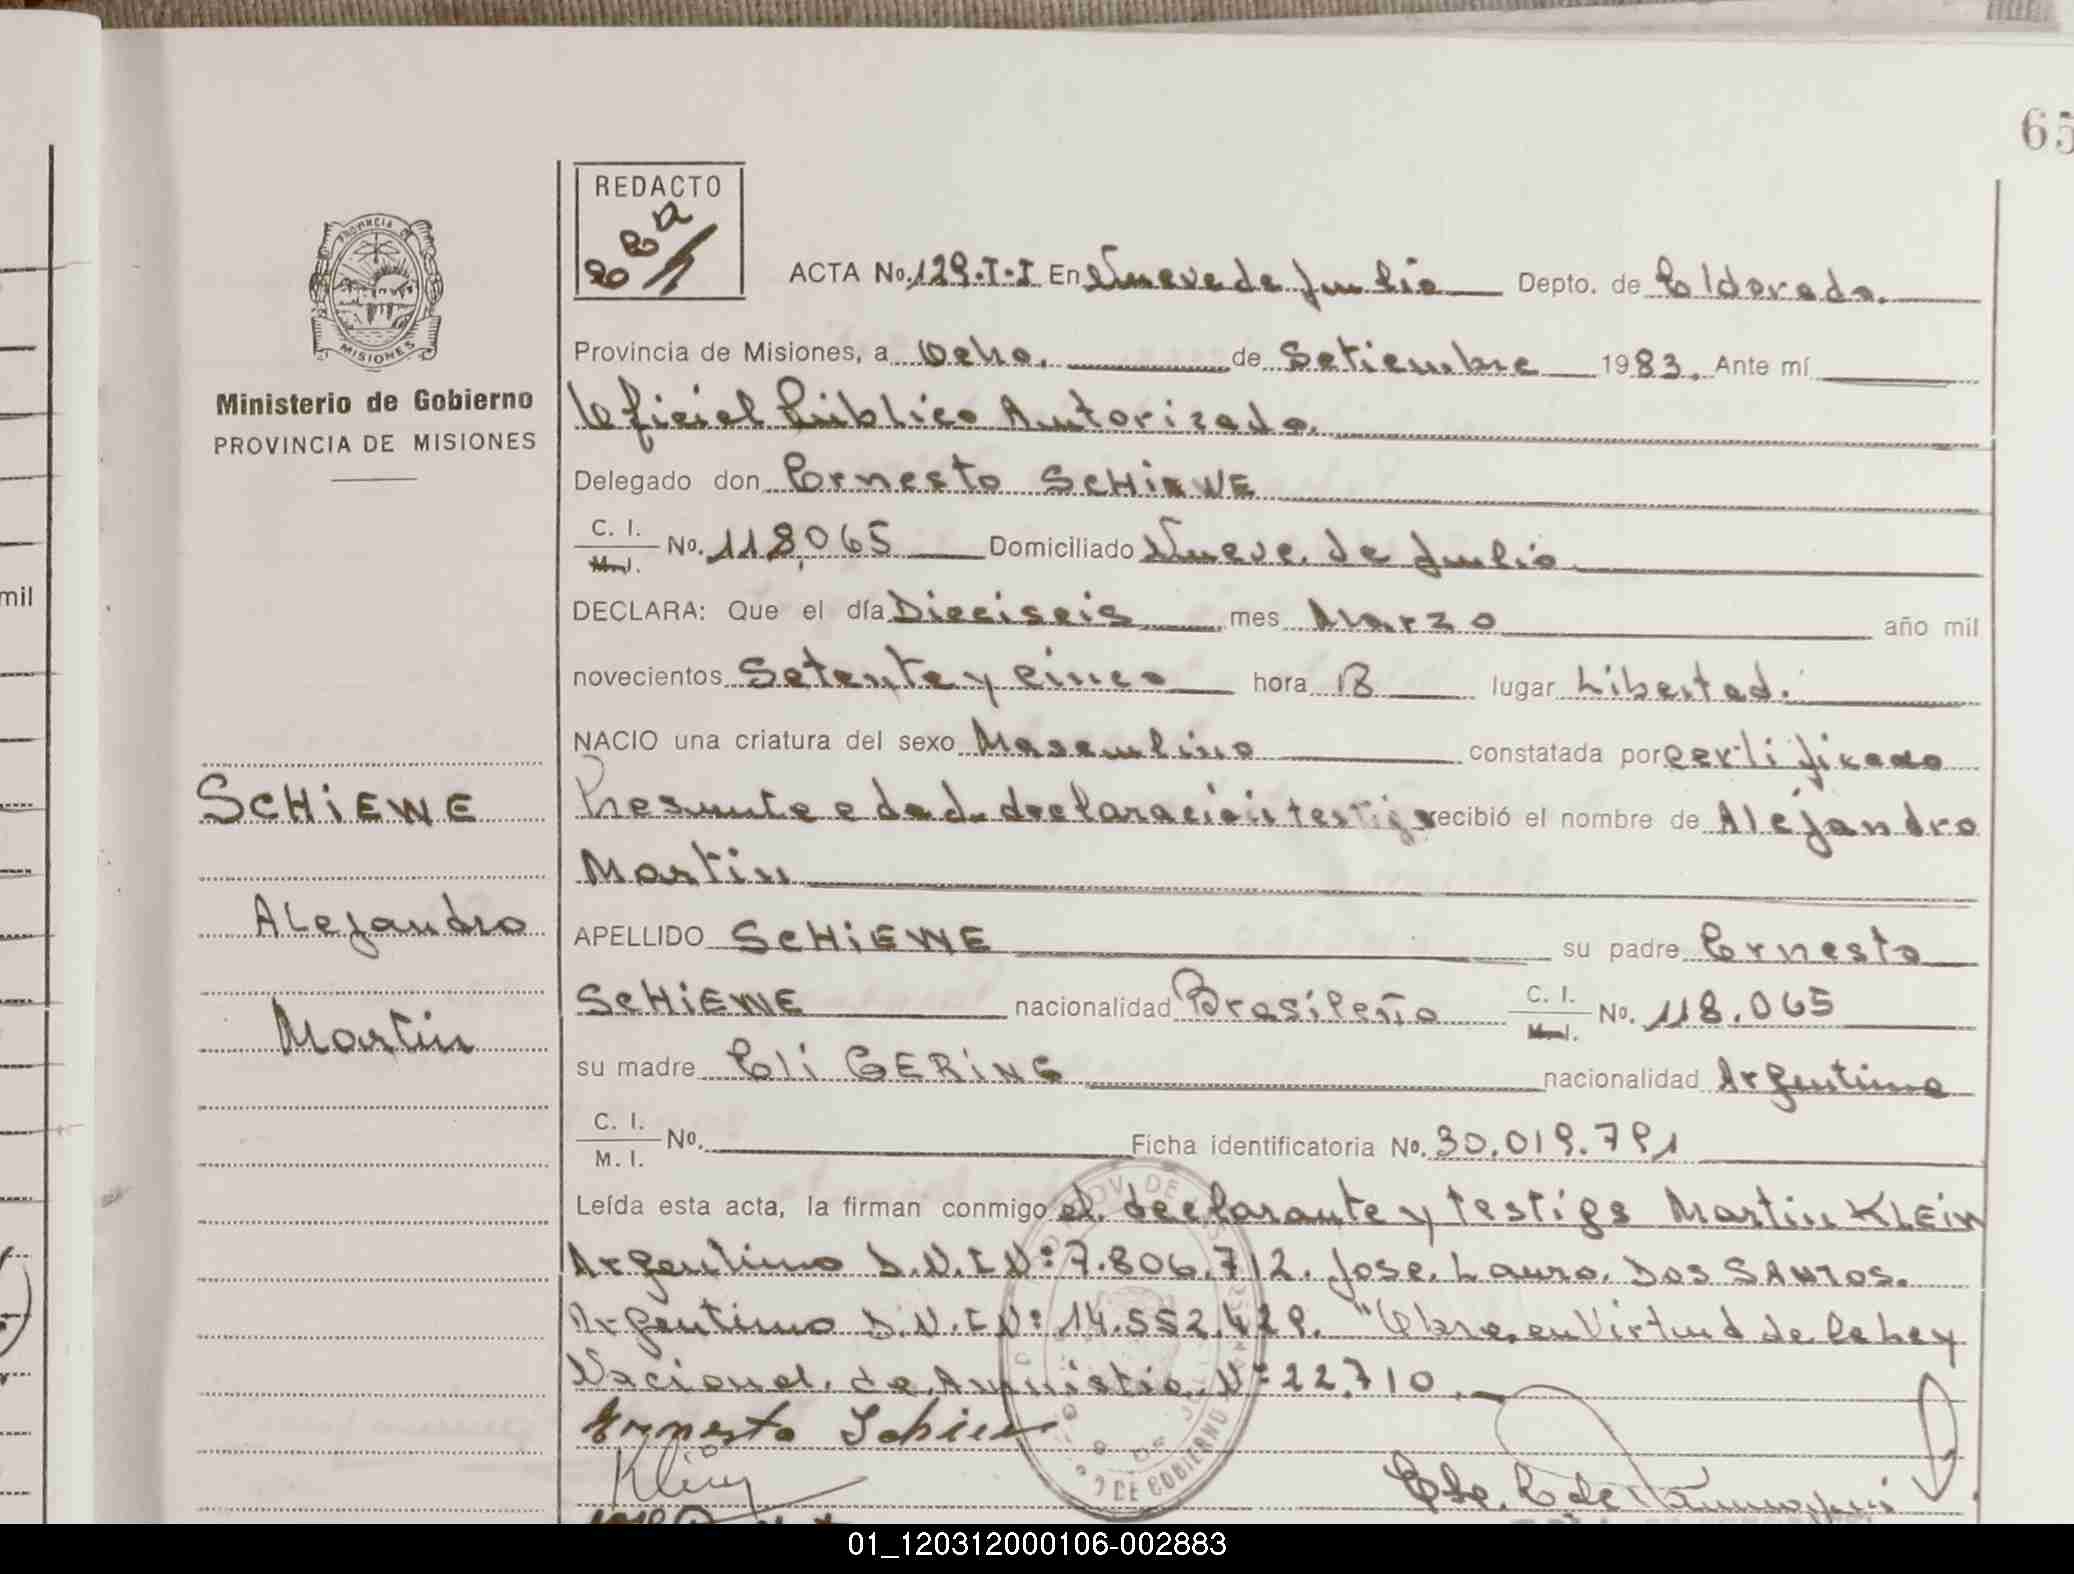 65
REDACTO
ACTA No. 129.T.I En Nueve de Julio Depto. de Eldorado.
Provincia de Misiones, a Ocho. de Setiembre 1983. Ante mí
Oficial Público Autorizado.
PROVINCIA DE
MISIONES
Ministerio de Gobierno
PROVINCIA DE MISIONES
Delegado don Ernesto SCHiEWE
C. I. No. 118,065 Domiciliado Nueve de Julio
M. I.
mil
DECLARA: Que el día Dieciseis mes Marzo año mil
novecientos Setenta y Cinco hora lugar Libertad.
NACIO una criatura del sexo Masculino constatada por certificado
SCHiEWE
Presunta edad. declaración testigo recibió el nombre de Alejandro
Martin
Alejandro
APELLIDO SCHiEWE su padre Ernesto
SCHiEWE nacionalidad Brasileño C. I. No. 118.065
M. I.
Martin
su madre Eli GERiNG nacionalidad Argentina
C. I. No. Ficha identificatoria No. 30.019.791
M. I.
Leída esta acta, la firman conmigo el declarante y testigo Martin KLEiN
Argentino D.N.I N: 7.806.712. Jose. Lauro. Dos SANTOS.
Argentino D.N.I N: 14.552.429. "Obra en Virtud de la Ley
Nacional. de Amnistia. N: 22.710.
Ernesto Schiewe
Klein
DE GOBIERNO
01_120312000106-002883